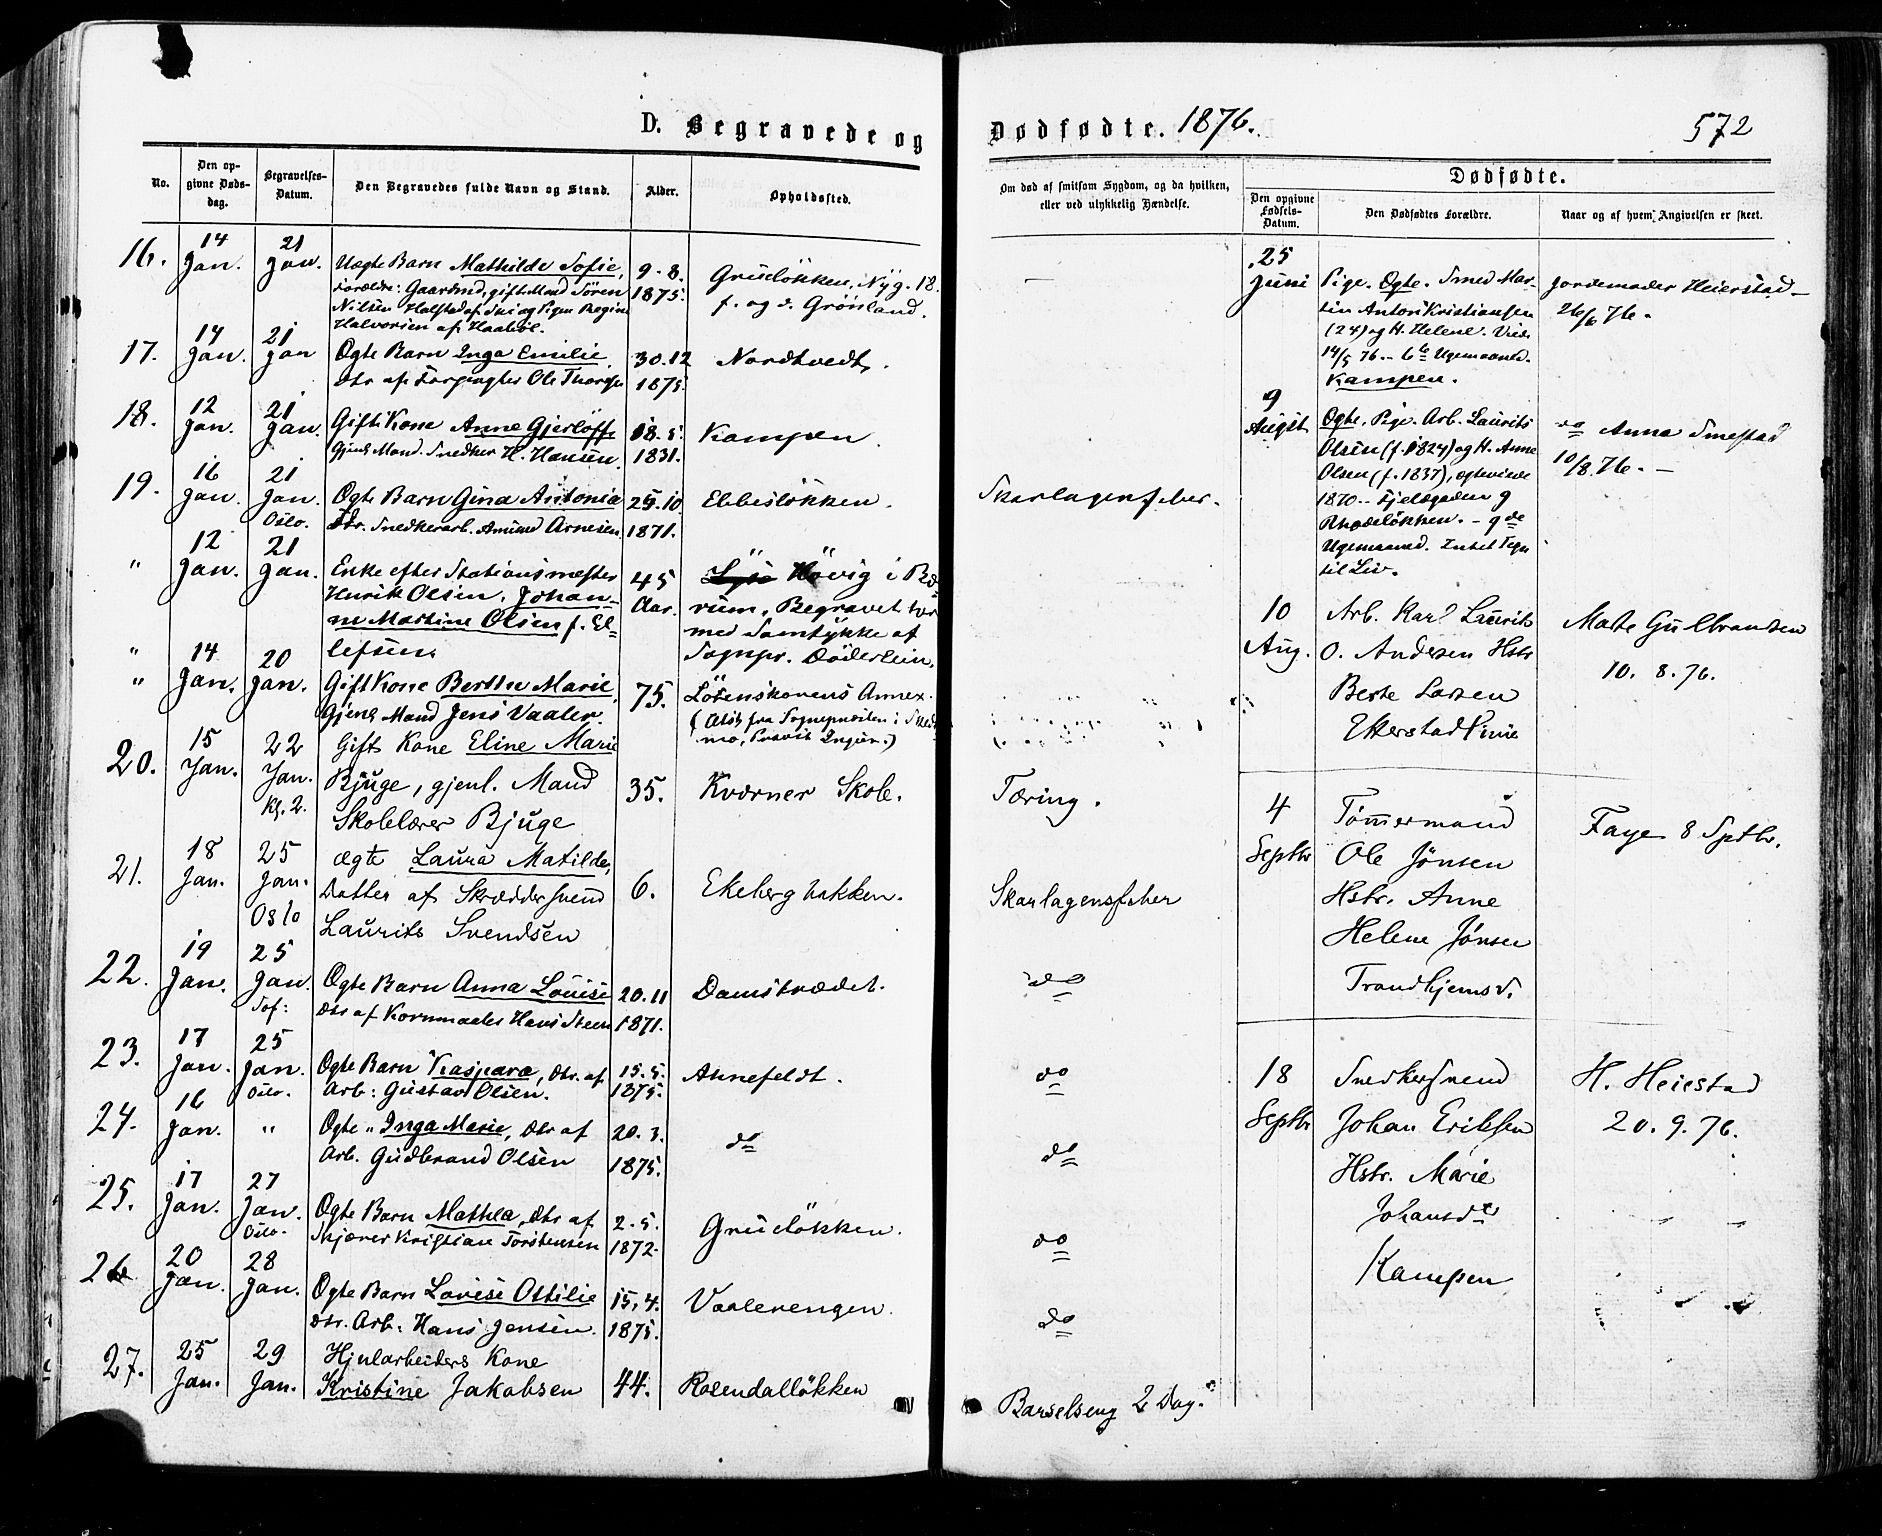 D. Begravede og
Dødfødte. 1876.
572
No.
Den opgivne Dødsdag.
Begravelses-Datum.
Den Begravedes fulde Navn og Stand.
Alder.
Opholdssted.
Om død af smitsom Sygdom, og da hvilken,
eller ved ulykkelig Hændelse.
Dødfødte.
Den opgivne Fødsels-Datum.
Den Dødfødtes Forældre.
Naar og af hvem Angivelsen er skeet.
16. 14 Jan. 21 Jan. Uægte Barn Mathilde Sofie, 9-8. 1875. Grueløkken, Nyg. 18.
Forældre: Gaardmd, gift Mand Sören f. og d. Grönland.
Nilsen Halstad af Ski og Pigen Regine
Halvorsen af Haabøl.
17. 14 Jan. 21 Jan Ægte Barn Inga Emilie, 30.12 1875. Nordtvedt.
Dtr af Forpagter Ole Thorgsn
18. 12 Jan. 21 Jan. Gift Kone Anne Gjerløff 18.5. 1831. Kampen.
Gjenl. Mand. Snedker H. Hansen.
19. 16 Jan. 21 Jan. Oslo. Ægte Barn Gina Antonia 25.10 1871. Ebbesløkken. Skarlagensfeber.
Dtr. Snedkerarb. Amund Arnesen
" 12 Jan. 21 Jan. Enke efter Stationsmester 45 Aar. Høvig i Bæ-
Henrik Olsen, Johan- rum, Begravet her
ne Martine Olsen f. El- med Samtykke af
lefsen. Sognpr. Döderlein.
" 14 Jan. 20 Jan. Gift Kone Berthe Marie, 75. Løtenskovens Annex.
Gjenl. Mand Jens Vaaler. (Attst fra Sognepræsten i
20. 15 Jan. 22 Jan. Kl. 2. Gift Kone Eline Marie 35. Kværner Skole. Tæring.
Bjuge, gjenl. Mand
Skolelærer Bjuge
21. 18 Jan. 25 Jan. Oslo ægte Laura Matilde, 6. Ekebergbakken. Skarlagensfeber
Datter af Skræddersvend
Laurits Svendsen
22. 19 Jan. 25 Jan. Sof: Ægte Barn Anna Louise 20.11 1871. Damstrædet. do
Dtr af Kornmaaler Hans Steen
23. 17 Jan. 25 Jan. Oslo. Ægte Barn Kaspara, Dtr. af 15.5. 1875. Annefeldt. do
Arb: Gustav Olsen.
24. 16 Jan. " Ægte " Inga Marie, Dtr af 20.3. 1875. do do
Arb. Gudbrand Olsen
25. 17 Jan. 27 Jan. Oslo. Ægte Barn Mathea, Dtr af 2.5. 1872. Grueløkken. do
Skjærer Kristian Torstensen
26 20 Jan. 28 Jan. Ægte Barn Lovise Ottilie 15.4. 1875. Vaalerengen. do
Dtr. Arb: Hans Jensen.
27. 25 Jan. 29 Jan. Hjularbeiders Kone 44. Rosendalløkken Barselseng 2 Dag.
Kristine Jakobsen
25 Juni Pige. Ægte. Smed Mar- Jordemoder Heierstad
tin Anton Kristiansen 26/6 76.
(24) og H. Helene. Viede
14/5 76. 6te Ugemaaned.
Kampen.
9 August Ægte. Pige. Arb. Laurits do Anna Smestad
Olsen (f. 1824) og H. Anne 10/8 76.
Olsen (f. 1837), egteviede
1870. Fjeldgaden 9
Rhodeløkken. 9de
Ugemaaned. Intet Tegn
til Liv.
10 Aug. Arb. Karl Laurits Mate Gulbrandsen
O. Andersen Hstr 10. 8. 76.
Berte Larsen
Etterstad
4 Septbr Tømmermand Faye 8 Sptbr.
Ole Jönsen
Hstr. Anne
Helene Jönsen
Trondhjemsv.
18 Septbr Snedkersvend H. Heiestad
Johan Eriksen 20. 9. 76.
Hstr. Marie
Johansd.
Kampen